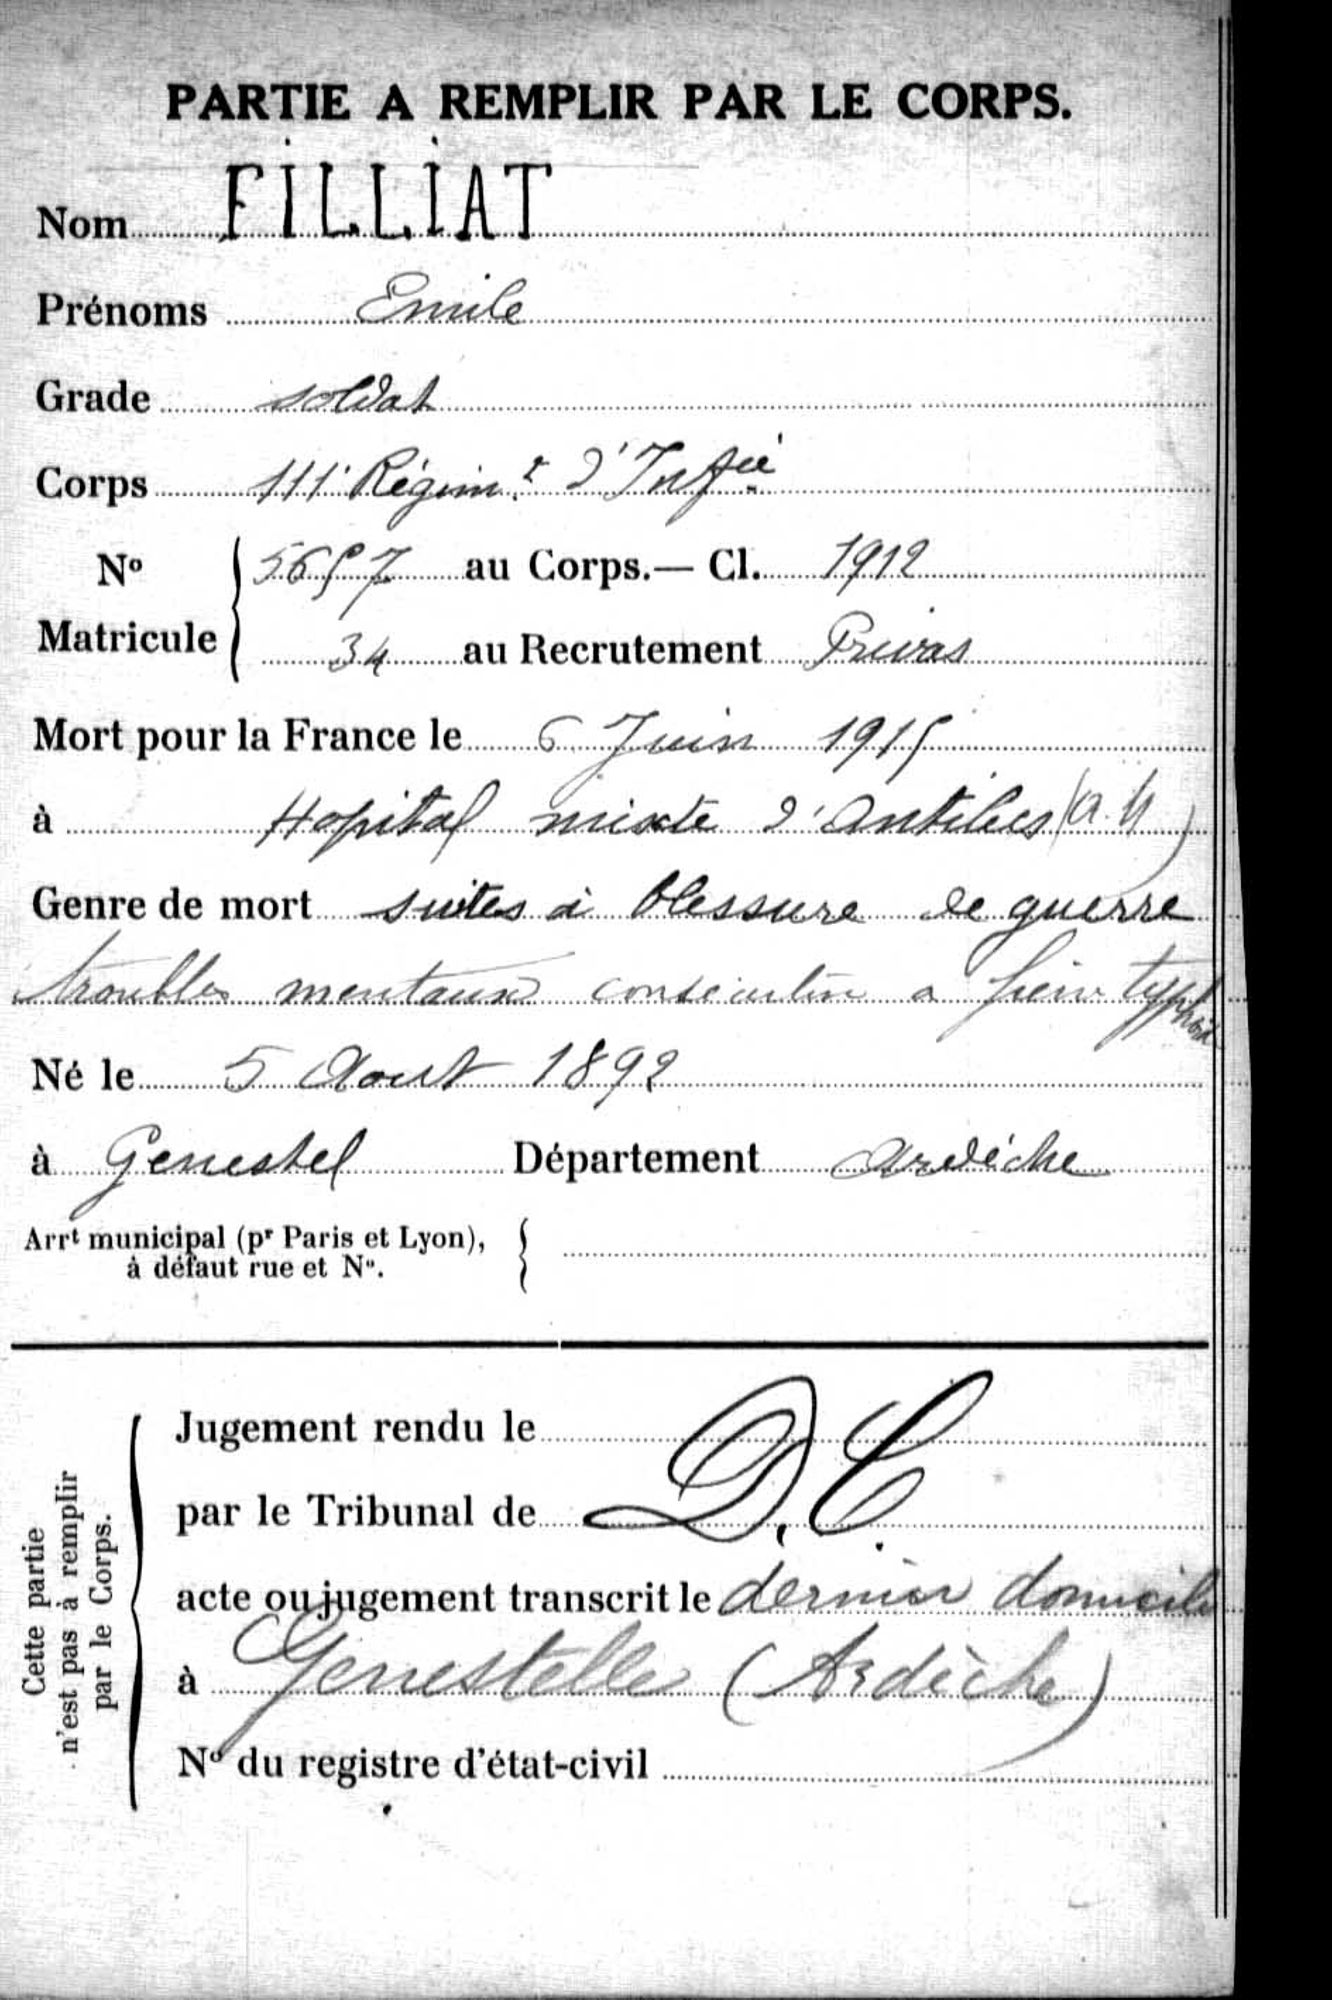 PARTIE A REMPLIR PAR LE CORPS.
Nom FILLIAT
Prénoms Emile
Grade soldat
Corps 111e Régimt d'Infie
No 5657 au Corps.— Cl. 1912
Matricule 34 au Recrutement Privas
Mort pour la France le 6 Juin 1915
à Hopital mixte d'Antibes (A.M)
Genre de mort suites à blessure de guerre
troubles mentaux consécutive a fièvre typhoïde
Né le 5 Aout 1892
à Genestel Département Ardèche
Arrt municipal (pr Paris et Lyon),
à défaut rue et No.
Cette partie
n'est pas à remplir
par le Corps.
Jugement rendu le
par le Tribunal de D.C.
acte ou jugement transcrit le dernier domicile
à Genestelle (Ardèche)
No du registre d'état-civil